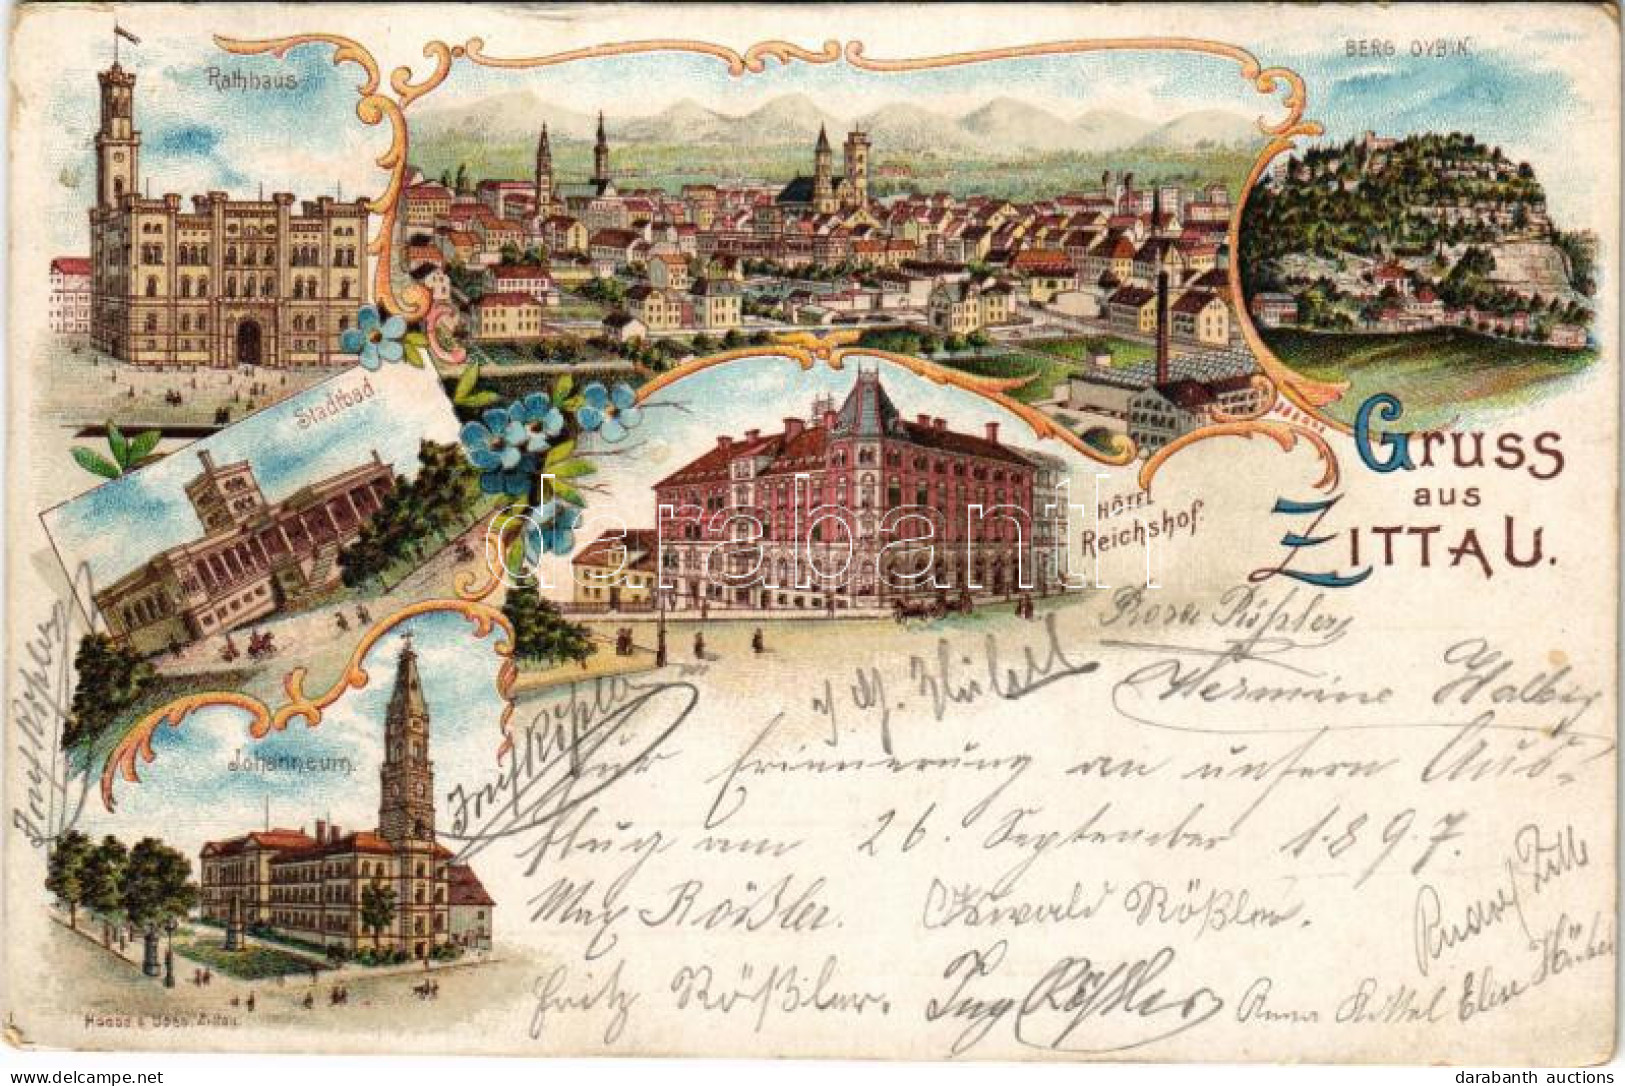 Rathhaus
BERG OYBIN
Stadtbad
HÔTEL
Reichshof.
Gruss
aus
ZITTAU.
Johanneum.
darabanth
Rosa Rößler
Hermine Halbig
zur Erinnerung an unsern Aus-
flug am 26 September 1897.
Max Rößler. Oswald Rößler.
Fritz Rößler.
Rößler
Anna Kittel Else
Rudolf
darabanth auctions